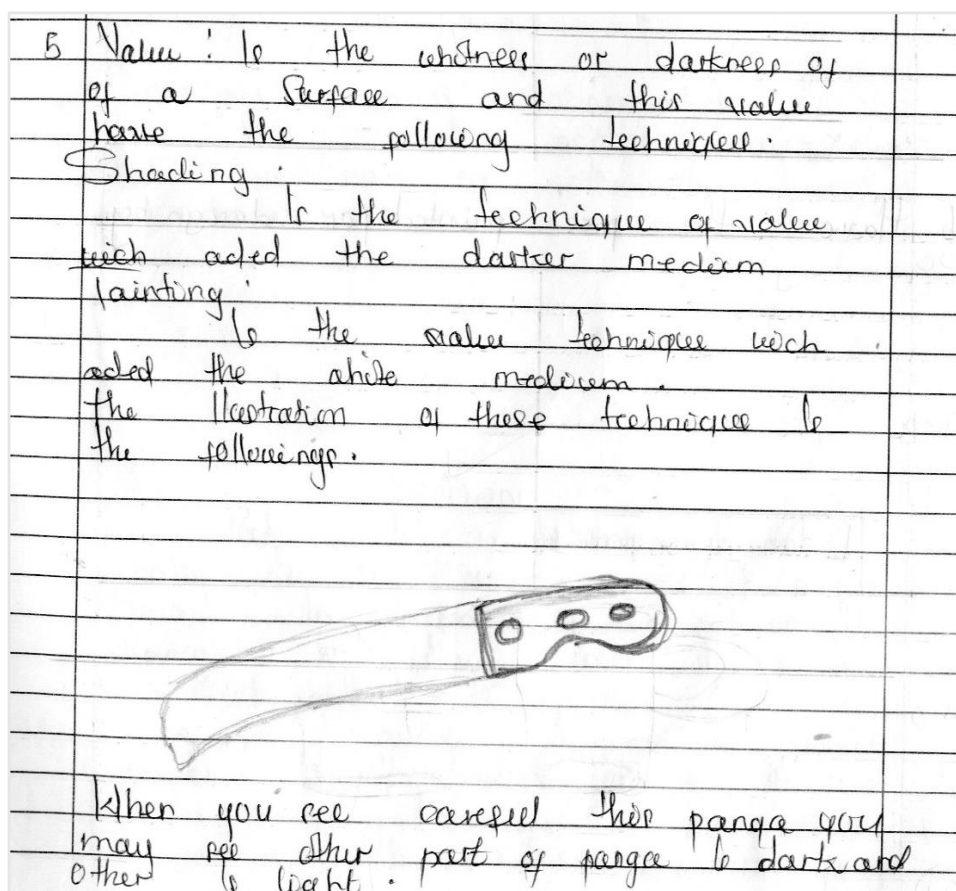 5 Value: Is the whitness or darkness of
of a Surface and this value
have the following techniques.
Shading:
Is the technique of value
wich aded the darker medium
Tainting:
Is the value technique wich
aded the white medium.
the Ilustration of these technique is
the followings.
When you see careful this panga you
may see other part of panga is dark and
other is light.